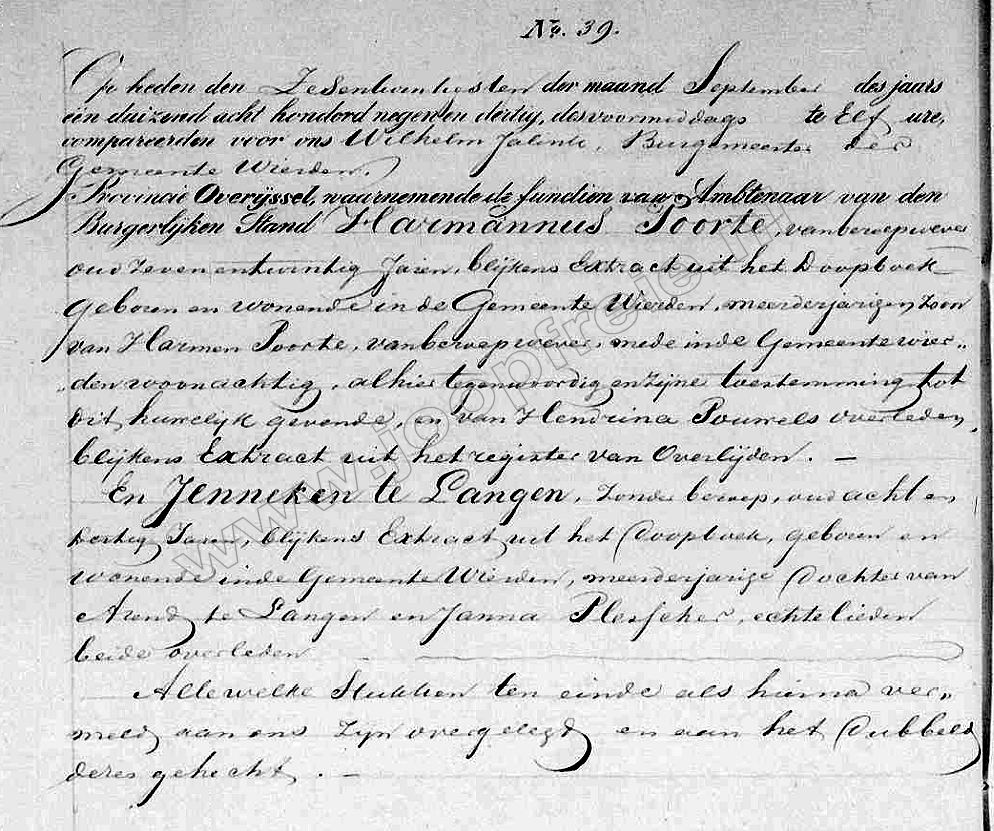 No. 39.
Op heden den Zesentwintigsten der maand September des jaars
een duizend acht honderd negen en dertig, des voormiddags te Elf ure,
compareerden voor ons Wilhelm Jalink, Burgemeester der
Gemeente Wierden.
Provincie Overijssel, waarnemende de functien van Ambtenaar van den
Burgerlijken Stand Harmannus Poorte, van beroep wever
oud zeven en twintig Jaren, blijkens Extract uit het Doopboek
geboren en wonende in de Gemeente Wierden, meerderjarigen zoon
van Harmen Poorte, van beroep wever, mede in de Gemeente Wier„
„den woonachtig, alhier tegenwoordig en zijne toestemming tot
dit huwelijk gevende, en van Hendrina Pouwels overleden,
blijkens Extract uit het register van Overlijden. —
En Jenneken te Langen, zonder beroep, oud acht en
dertig Jaren, blijkens Extract uit het Doopboek, geboren en
wonende in de Gemeente Wierden, meerderjarige Dochter van
Arend te Langen en Janna Plesscher, echtelieden
beide overleden
Alle welke Stukken ten einde als hierna ver„
meld aan ons zijn overgelegt en aan het Dubbeld
deres gehecht. —
www.joopfree.nl